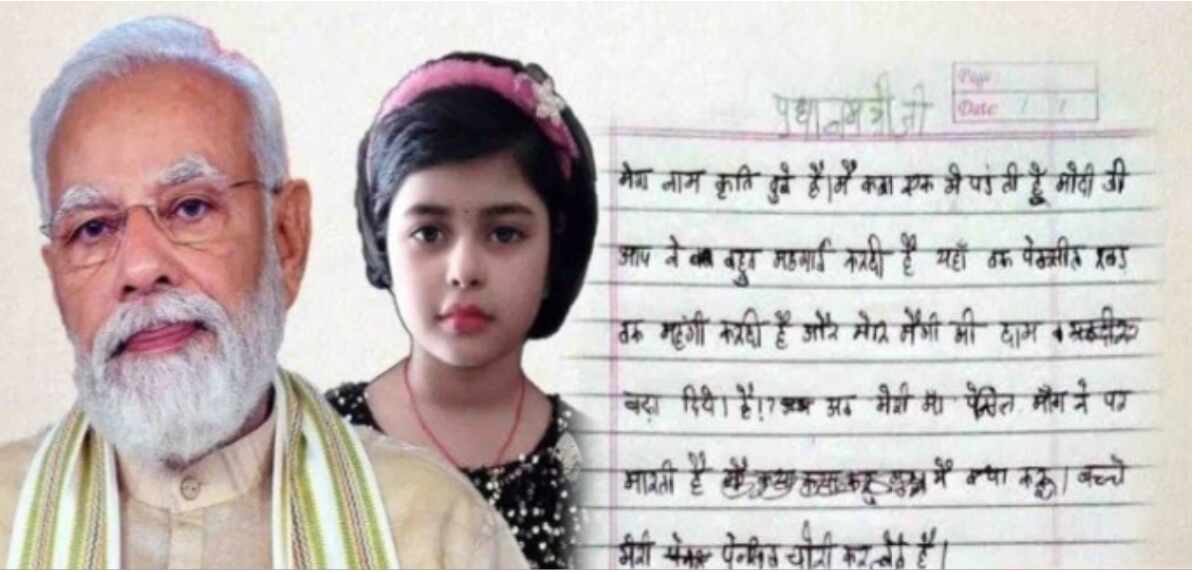 Page
Date / /
प्रधानमंत्री जी
मेरा नाम कृति दुबे है। मै कक्षा एक मे पड़ती हूँ मोदी जी
आप ने बहुत महगाई करदी है यहाँ तक पेनसील रबड़
तक महंगी करदी है और मेरि मैगी की दाम
बड़ा दिये। है!? अब मेरी मा पेंसिल माँगने पर
मारती है मै क्या करू। बच्चे
मेरी पेनसिल चोरी कर लेते है।